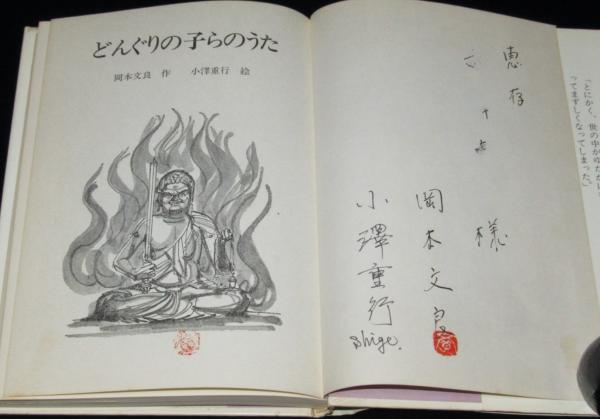 どんぐりの子らのうた
岡本文良 作　小澤重行 絵
恵存
様
岡本文良
小澤重行
Shige.
「とにかく、世の中がゆたかに
ってまずしくなってしまった。」